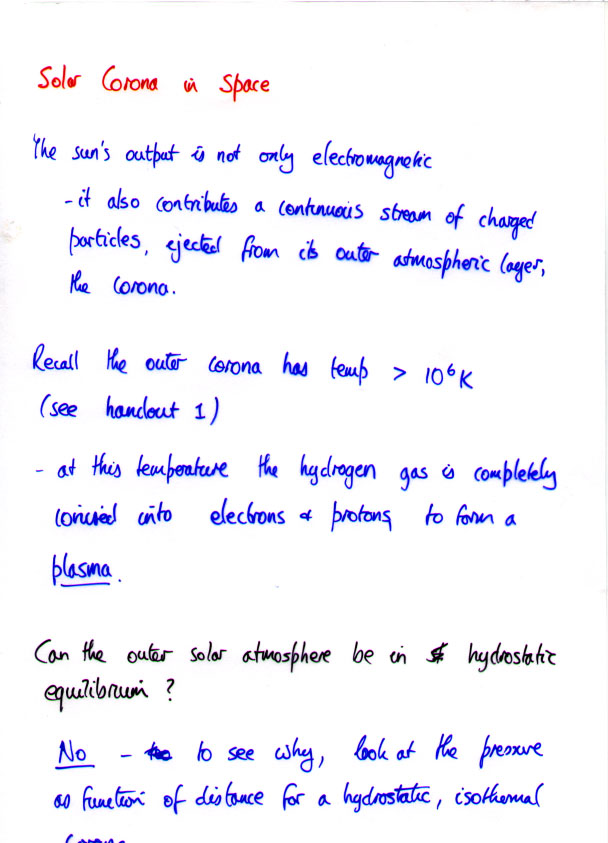 Solar Corona in Space
The sun's output is not only electromagnetic
- it also contributes a continuous stream of charged
particles, ejected from its outer atmospheric layer,
the corona.
Recall the outer corona has temp > 10⁶ K
(see handout 1)
- at this temperature the hydrogen gas is completely
ionised into electrons & protons to form a
plasma.
Can the outer solar atmosphere be in hydrostatic
equilibrium ?
No - to see why, look at the pressure
as function of distance for a hydrostatic, isothermal